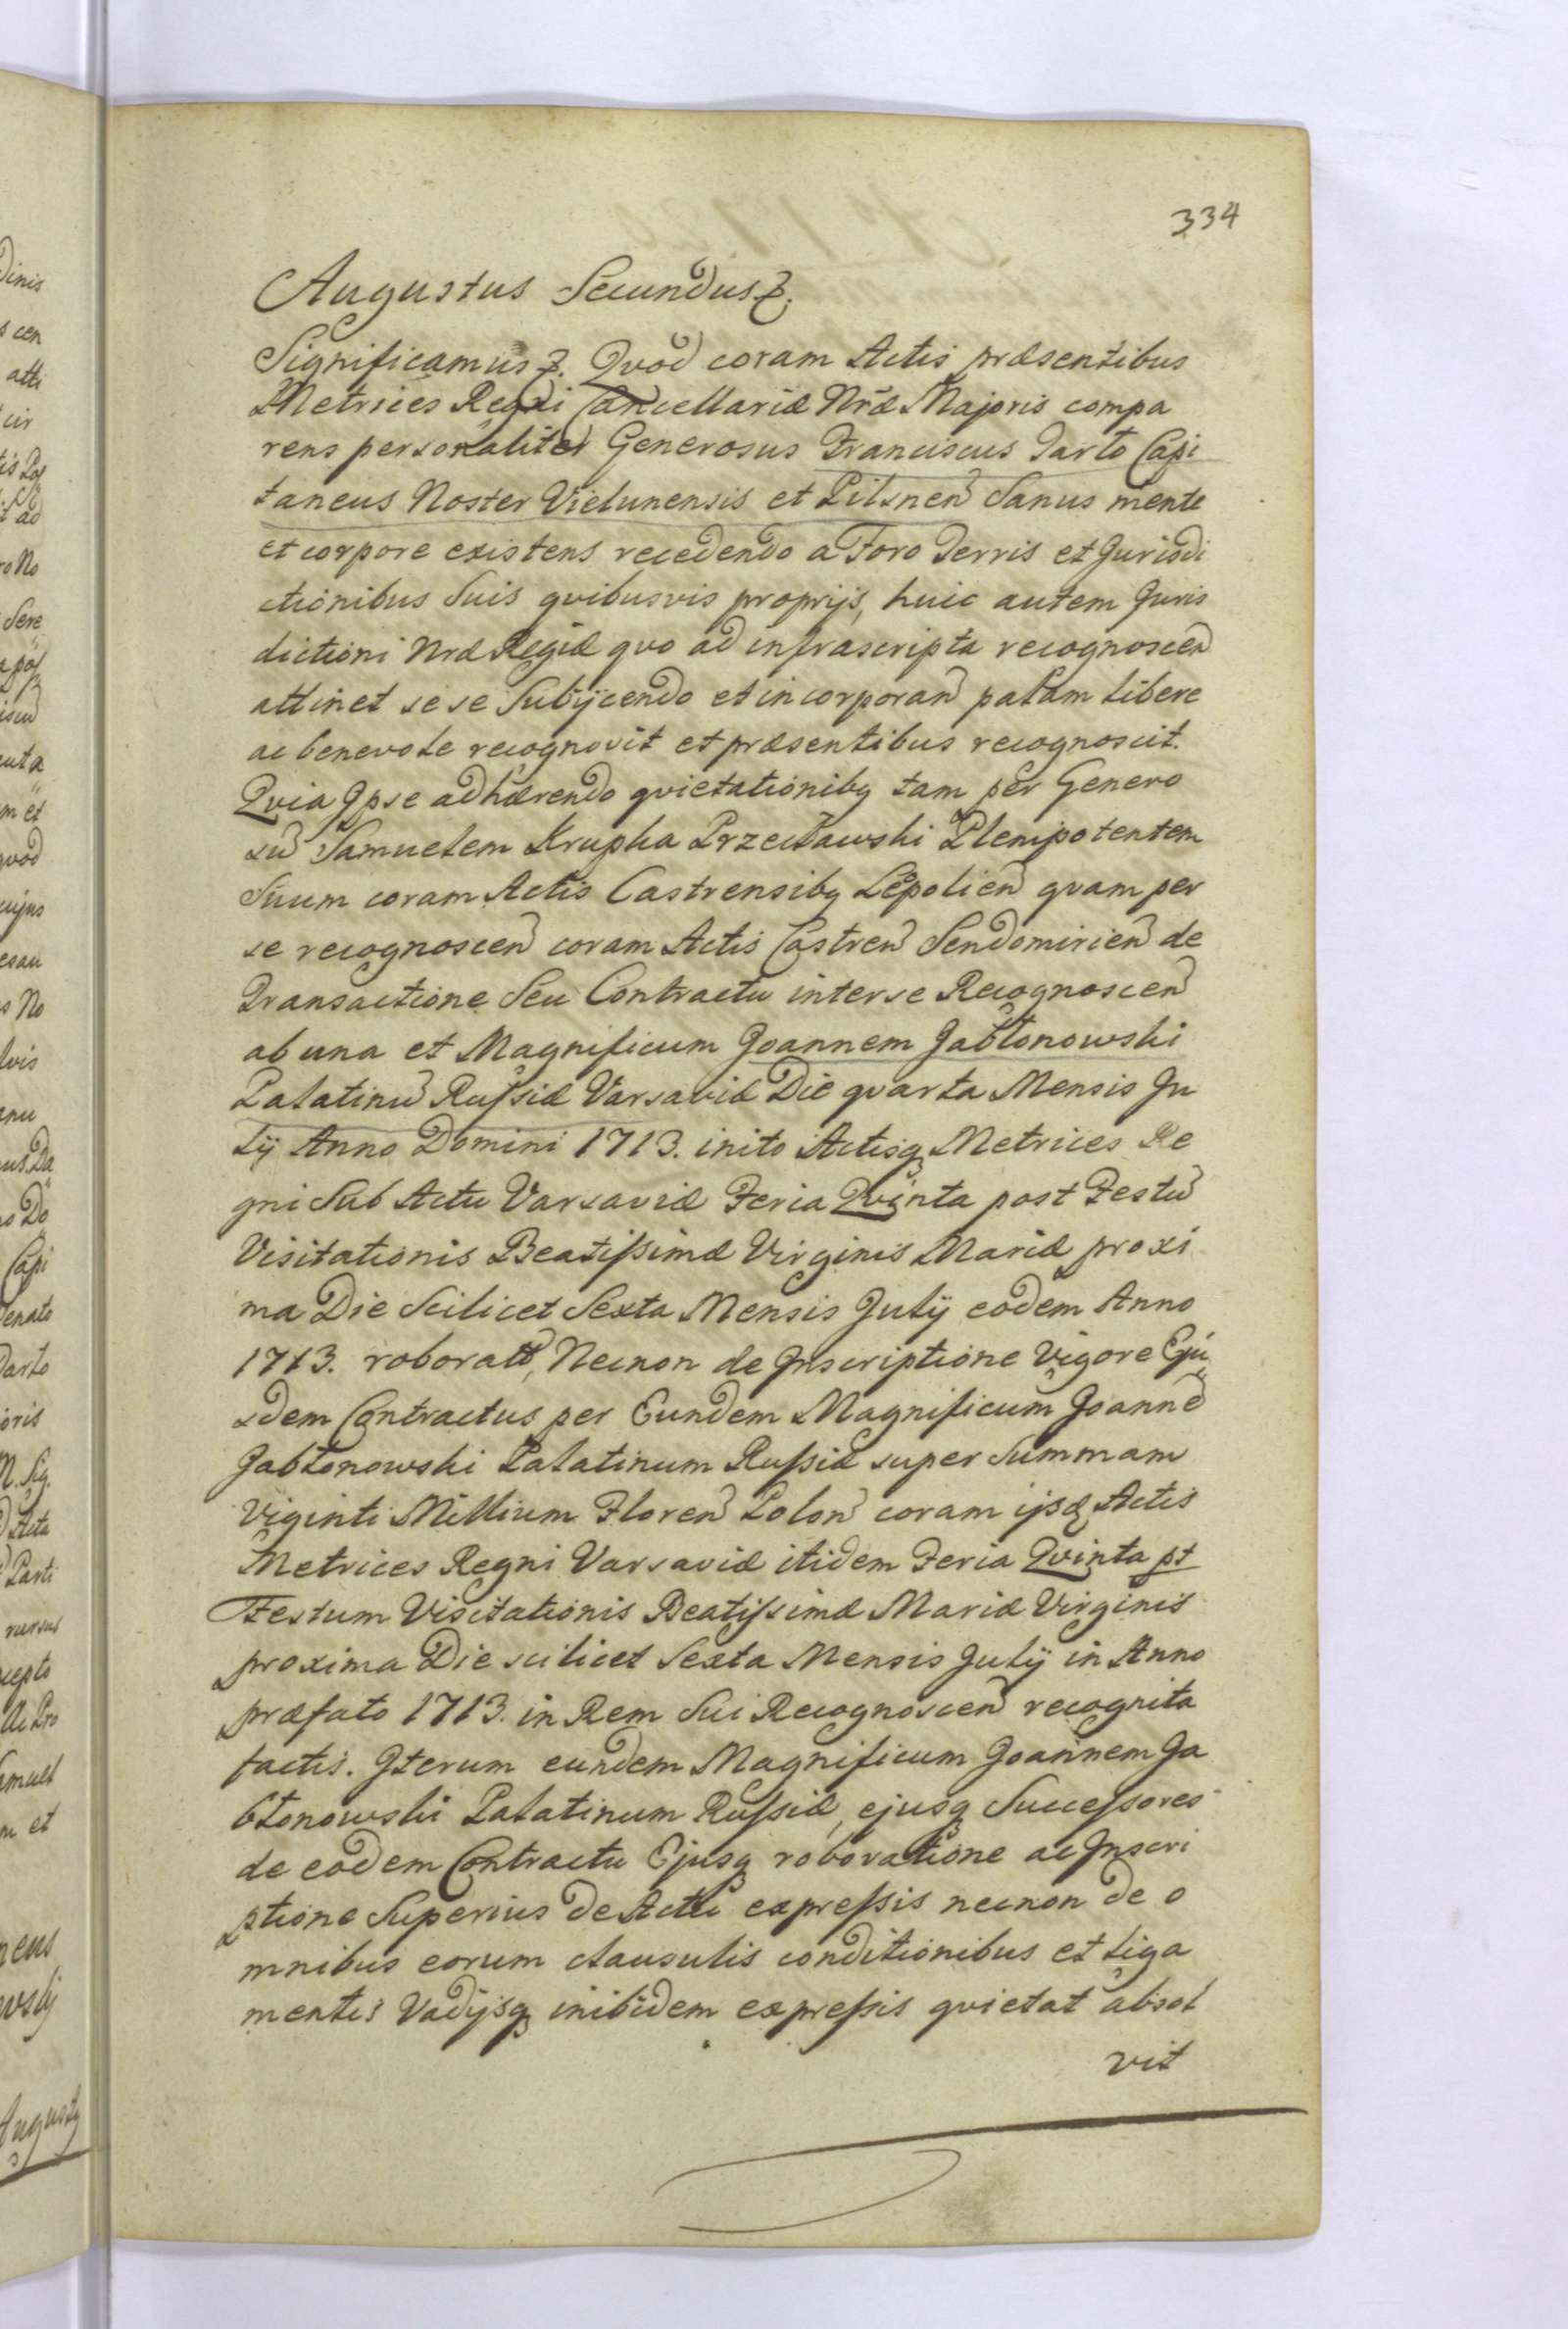 334
Augustus Secundus &.
Significamus &. Qvod coram Actis præsentibus
Metrices Regni Cancellariæ Nræ Majoris compa
rens personaliter Generosus Franciscus Tarło Capi
taneus Noster Vielunensis et Pilsneñ Sanus mente
et corpore existens recedendo a Foro Terris et Jurisdi
ctionibus Suis qvibusvis proprijs, huic autem Juris
dictioni Nræ Regiæ qvo ad infrascripta recognosceñ
attinet se se Subijcendo et incorporañ palam libere
ac benevole recognovit et præsentibus recognoscit.
Qvia Ipse adhærendo qvietationibq tam per Genero
sũ Samuelem Krupka Przecławski Plenipotentem
Suum coram Actis Castrensibq Lepolieñ qvam per
se recognosceñ coram Actis Castreñ Sendomirieñ de
Transactione Seu Contractu interse Recognosceñ
ab una et Magnificum Joannem Jabłonowski
Palatinũ Russiæ Varsaviæ Die qvarta Mensis Ju
lij Anno Domini 1713. inito Actisq Metrices Re
gni Sub Actu Varsaviæ Feria Qvinta post Festũ
Visitationis Beatissimæ Virginis Mariæ proxi
ma Die Scilicet Sexta Mensis Julij eodem Anno
1713. roborato, Necnon de Inscriptione Vigore Eju
sdem Contractus per Eundem Magnificum Joannẽ
Jabłonowski Palatinum Russiæ super Summam
Viginti Millium Floreñ Poloñ coram ijsdẽ Actis
Metrices Regni Varsaviæ itidem Feria Qvinta pt
Festum Visitationis Beatissimæ Mariæ Virginis
proxima Die scilicet Sexta Mensis Julij in Anno
præfato 1713. in Rem Sui Recognosceñ recognita
factis. Iterum eundem Magnificum Joannem Ja
błonowski Palatinum Russiæ, ejusq Successores
de eodem Contractu Ejusq roboratione ac Inscri
ptione Superius de Actu expressis necnon de o
mnibus eorum clausulis conditionibus et liga
mentis Vadijsq inibidem expressis qvietat absol
vit